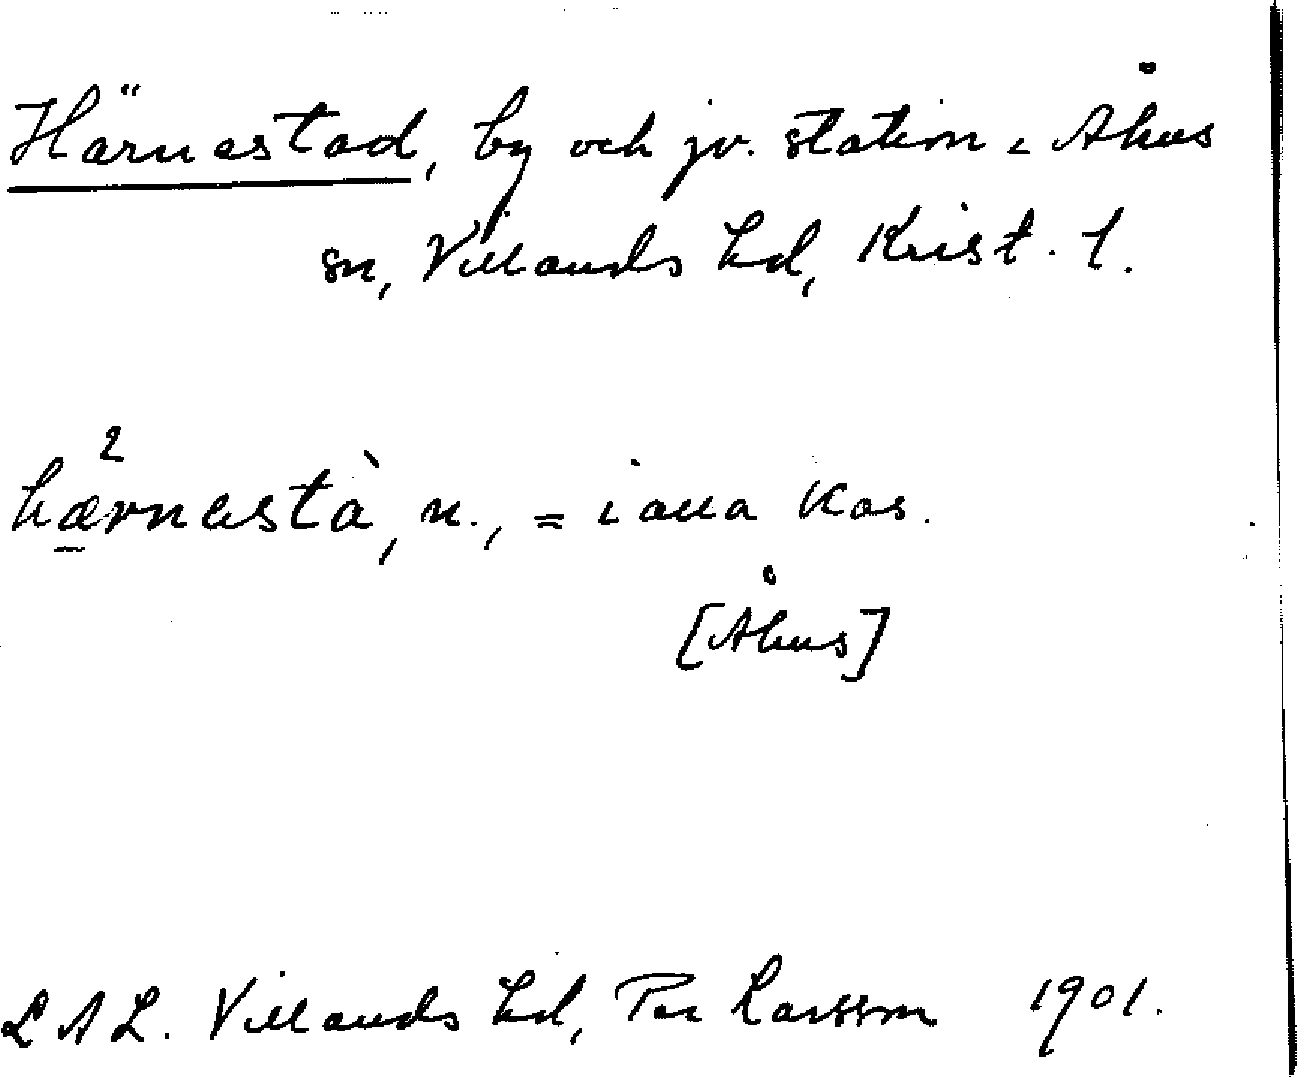 Härnestad, by och jv. station i Åhus
sn, Villands hd, Krist. l.
hæ̱²rnestà, n., = i alla kas.
[Åhus]
LAL. Villands hd, Per Larsson 1901.